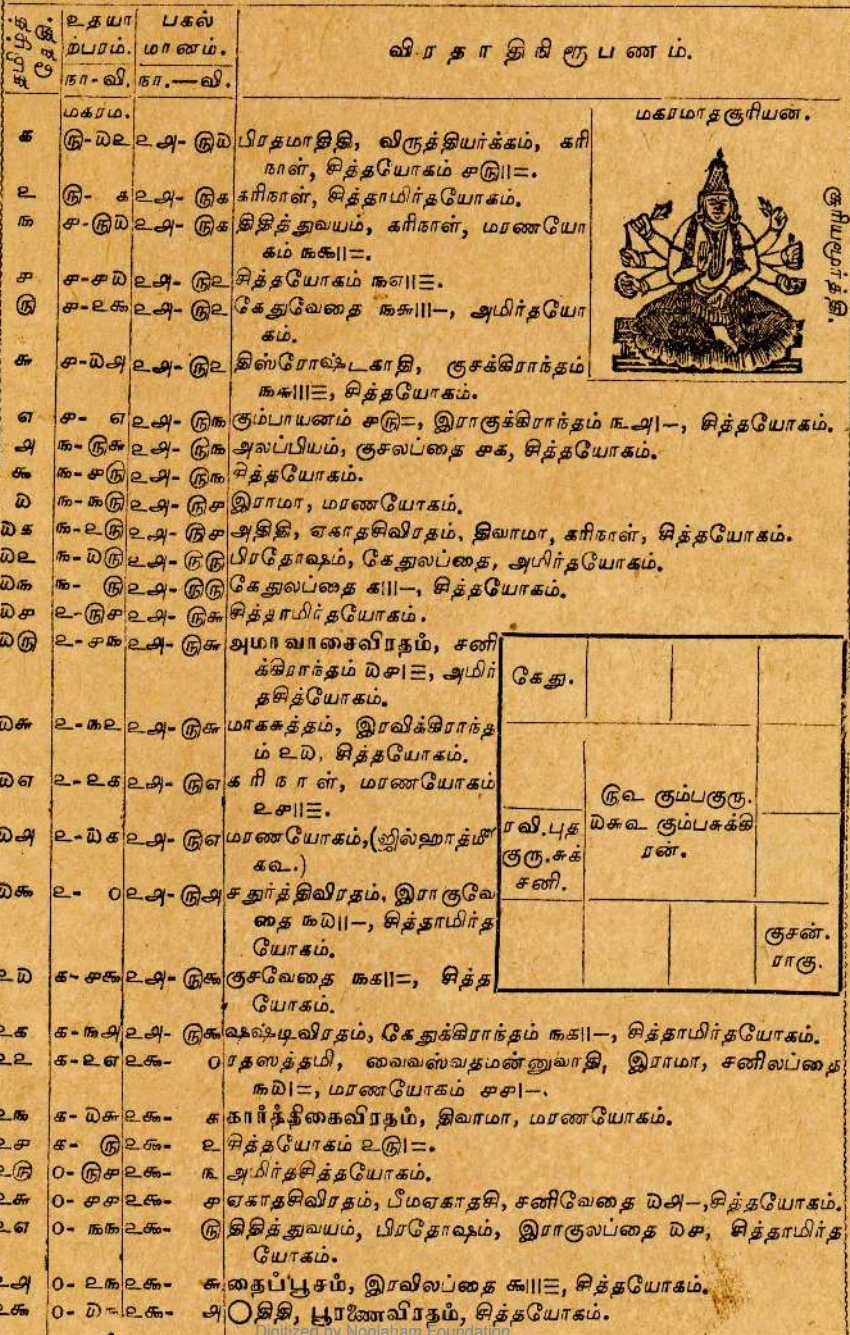 தமிழ்த் தேதி.
உதயா ற்பரம். நா-வி.
பகல் மானம். நா.—வி.
விரதாதிநிரூபணம்.
மகரம.
மகரமாதசூரியன்.
சூரியமூர்த்தி.
௧ ௫-௰௨ ௨௮-௫௰ பிரதமாதிதி, விருத்தியர்க்கம், கரி
நாள், சித்தயோகம் ௪௫||=.
௨ ௫- ௧ ௨௮-௫௧ கரிநாள், சித்தாமிர்தயோகம்.
௩ ௪-௫௰ ௨௮-௫௧ திதித்துவயம், கரிநாள், மரணயோ
கம் ௩௯||=.
௪ ௪-௪௰ ௨௮-௫௨ சித்தயோகம் ௩௭||≡.
௫ ௪-௨௯ ௨௮-௫௨ கேதுவேதை ௩௬|||–, அமிர்தயோ
கம்.
௬ ௪-௰௮ ௨௮-௫௨ திஸ்ரோஷ்டகாதி, குசக்கிராந்தம்
௩௬|||≡, சித்தயோகம்.
௭ ௪- ௭ ௨௮-௫௩ கும்பாயனம் ௪௫=, இராகுக்கிராந்தம் ௩௮|–, சித்தயோகம்.
௮ ௩-௫௬ ௨௮-௫௩ அலப்பியம், குசலப்தை ௪௧, சித்தயோகம்.
௯ ௩-௪௫ ௨௮-௫௩ சித்தயோகம்.
௰ ௩-௩௫ ௨௮-௫௪ இராமா, மரணயோகம்.
௰௧ ௩-௨௫ ௨௮-௫௪ அதிதி, ஏகாதசிவிரதம், திவாமா, கரிநாள், சித்தயோகம்.
௰௨ ௩-௰௫ ௨௮-௫௫ பிரதோஷம், கேதுலப்தை, அமிர்தயோகம்.
௰௩ ௩- ௫ ௨௮-௫௫ கேதுலப்தை ௧|||–, சித்தயோகம்.
௰௪ ௨-௫௪ ௨௮-௫௬ சித்தாமிர்தயோகம்.
௰௫ ௨-௪௩ ௨௮-௫௬ அமாவாசைவிரதம், சனி
க்கிராந்தம் ௰௪|≡, அமிர்
தசித்யோகம்.
௰௬ ௨-௩௨ ௨௮-௫௬ மாகசுத்தம், இரவிக்கிராந்த
ம் ௨௰, சித்தயோகம்.
௰௭ ௨-௨௧ ௨௮-௫௭ கரிநாள், மரணயோகம்
௨௪||≡.
௰௮ ௨-௰௧ ௨௮-௫௭ மரணயோகம்,(ஜில்ஹாத்மீ
௧௳.)
௰௯ ௨- ௦ ௨௮-௫௮ சதுர்த்திவிரதம், இராகுவே
தை ௩௰||–, சித்தாமிர்த
யோகம்.
௨௰ ௧-௪௯ ௨௮-௫௯ குசவேதை ௩௧||=, சித்த
யோகம்.
கேது.
ரவி.புத
குரு.சுக்
சனி.
௫௳ கும்பகுரு.
௰௬௳ கும்பசுக்கி
ரன்.
குசன்.
ராகு.
௨௧ ௧-௩௮ ௨௮-௫௯ ஷஷ்டிவிரதம், கேதுக்கிராந்தம் ௩௧||–, சித்தாமிர்தயோகம்.
௨௨ ௧-௨௭ ௨௯- ௦ ரதஸத்தமி, வைவஸ்வதமன்னுவாதி, இராமா, சனிலப்தை
௩௰|=, மரணயோகம் ௪௪|–.
௨௩ ௧-௰௬ ௨௯- ௧ கார்த்திகைவிரதம், திவாமா, மரணயோகம்.
௨௪ ௧- ௫ ௨௯- ௨ சித்தயோகம் ௨௫|=.
௨௫ ௦-௫௪ ௨௯- ௩ அமிர்தசித்தயோகம்.
௨௬ ௦-௪௪ ௨௯- ௪ ஏகாதசிவிரதம், பீமஏகாதசி, சனிவேதை ௰௮–,சித்தயோகம்.
௨௭ ௦-௩௩ ௨௯- ௫ திதித்துவயம், பிரதோஷம், இராகுலப்தை ௰௪, சித்தாமிர்த
யோகம்.
௨௮ ௦-௨௩ ௨௯- ௬ தைப்பூசம், இரவிலப்தை ௯|||≡, சித்தயோகம்.
௨௯ ௦- ௨௯- ௮ ○திதி, பூரணைவிரதம், சித்தயோகம்.
Digitized by Noolaham Foundation